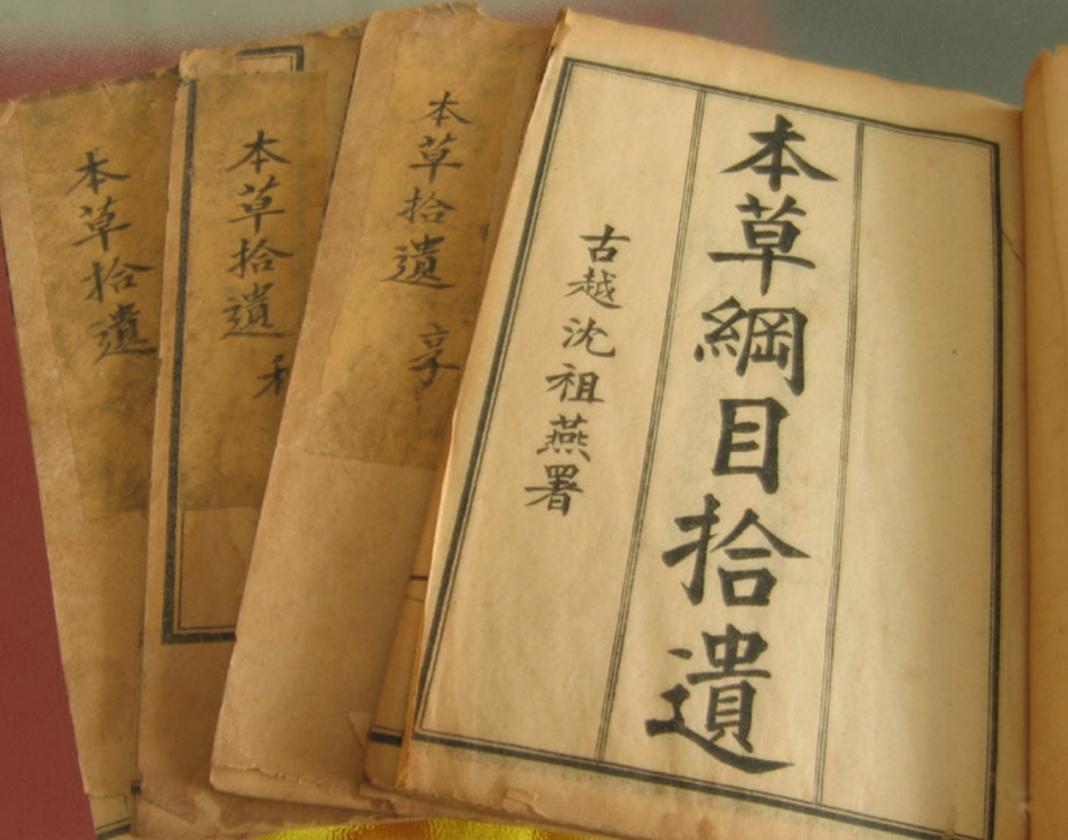 本草綱目拾遺
古越沈祖燕署
本草拾遺
亨
本草拾遺
利
本草拾遺